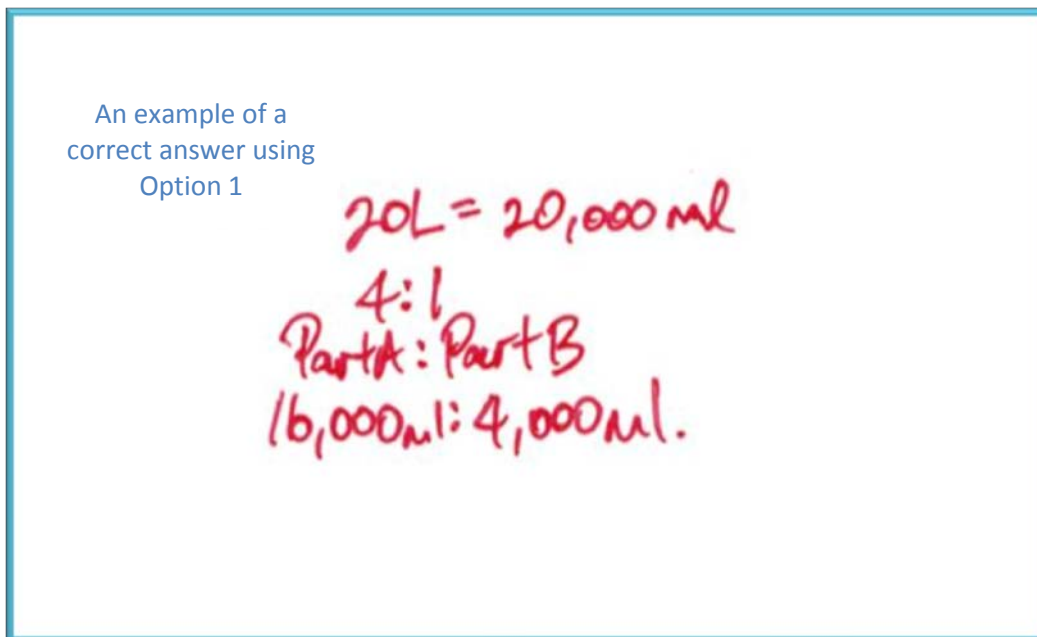 An example of a
correct answer using
Option 1
20L = 20,000 ml
4:1
Part A : Part B
16,000ml : 4,000ml.